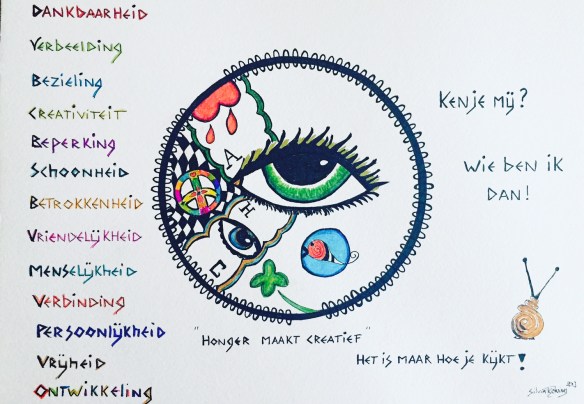 DANKBAARHEID
VERBEELDING
BEZIELING
CREATIVITEIT
BEPERKING
SCHOONHEID
BETROKKENHEID
VRIENDELIJKHEID
MENSELIJKHEID
VERBINDING
PERSOONLIJKHEID
VRIJHEID
ONTWIKKELING
A
H
C
"HONGER MAAKT CREATIEF"
KEN JE MIJ?
WIE BEN IK
DAN!
HET IS MAAR HOE JE KIJKT!